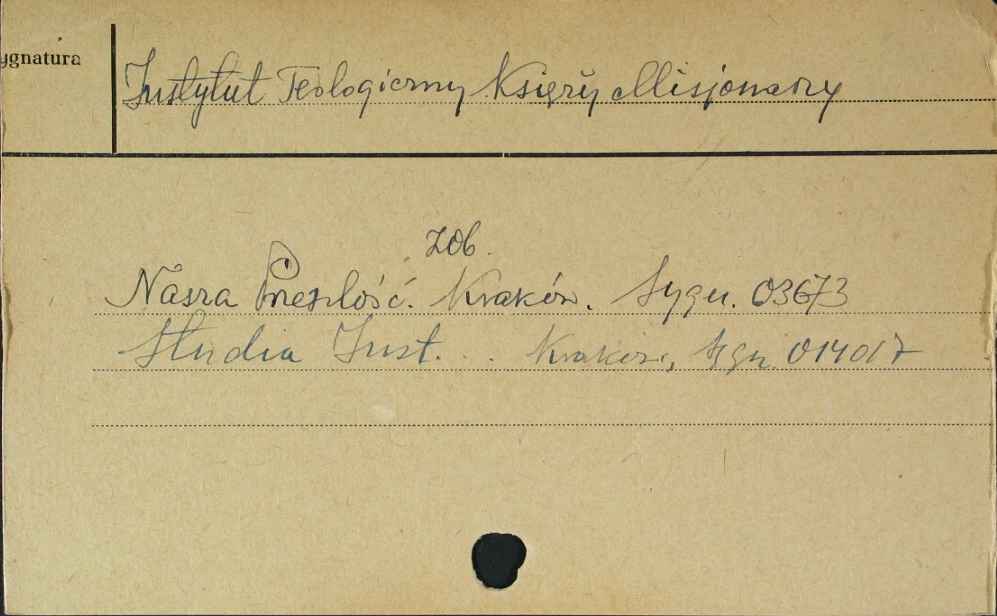 ygnatura
Instytut Teologiczny Księży Misjonarzy
zob.
Nasza Przeszłość. Kraków. Sygn. 03673
Studia Inst. . . Kraków, Sygn. 014017